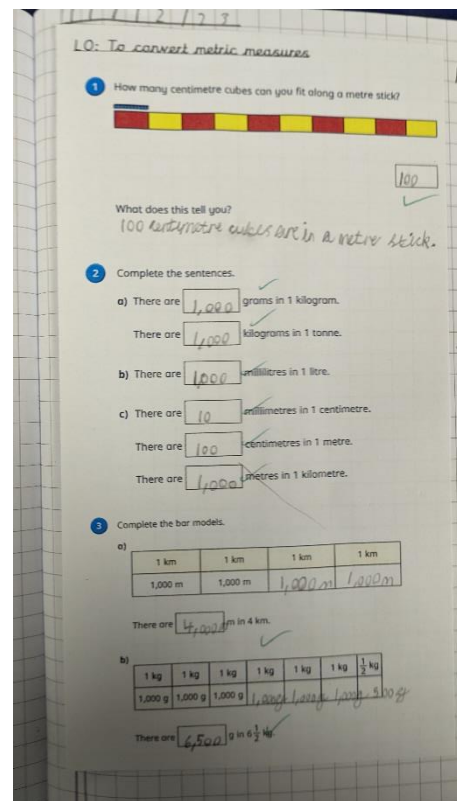 LO: To convert metric measures
1 How many centimetre cubes can you fit along a metre stick?
100
What does this tell you?
100 centimetre cubes are in a metre stick.
2 Complete the sentences.
a) There are 1,000 grams in 1 kilogram.
There are 1,000 kilograms in 1 tonne.
b) There are 1,000 millilitres in 1 litre.
c) There are 10 millimetres in 1 centimetre.
There are 100 centimetres in 1 metre.
There are 1,000 metres in 1 kilometre.
3 Complete the bar models.
a)
1 km 1 km 1 km 1 km
1,000 m 1,000 m 1,000 m 1,000 m
There are 4,000 m in 4 km.
b)
1 kg 1 kg 1 kg 1 kg 1 kg 1 kg 1/2 kg
1,000 g 1,000 g 1,000 g 1,000g 1,000g 1,000g 500 g
There are 6,500 g in 6 1/2 kg.